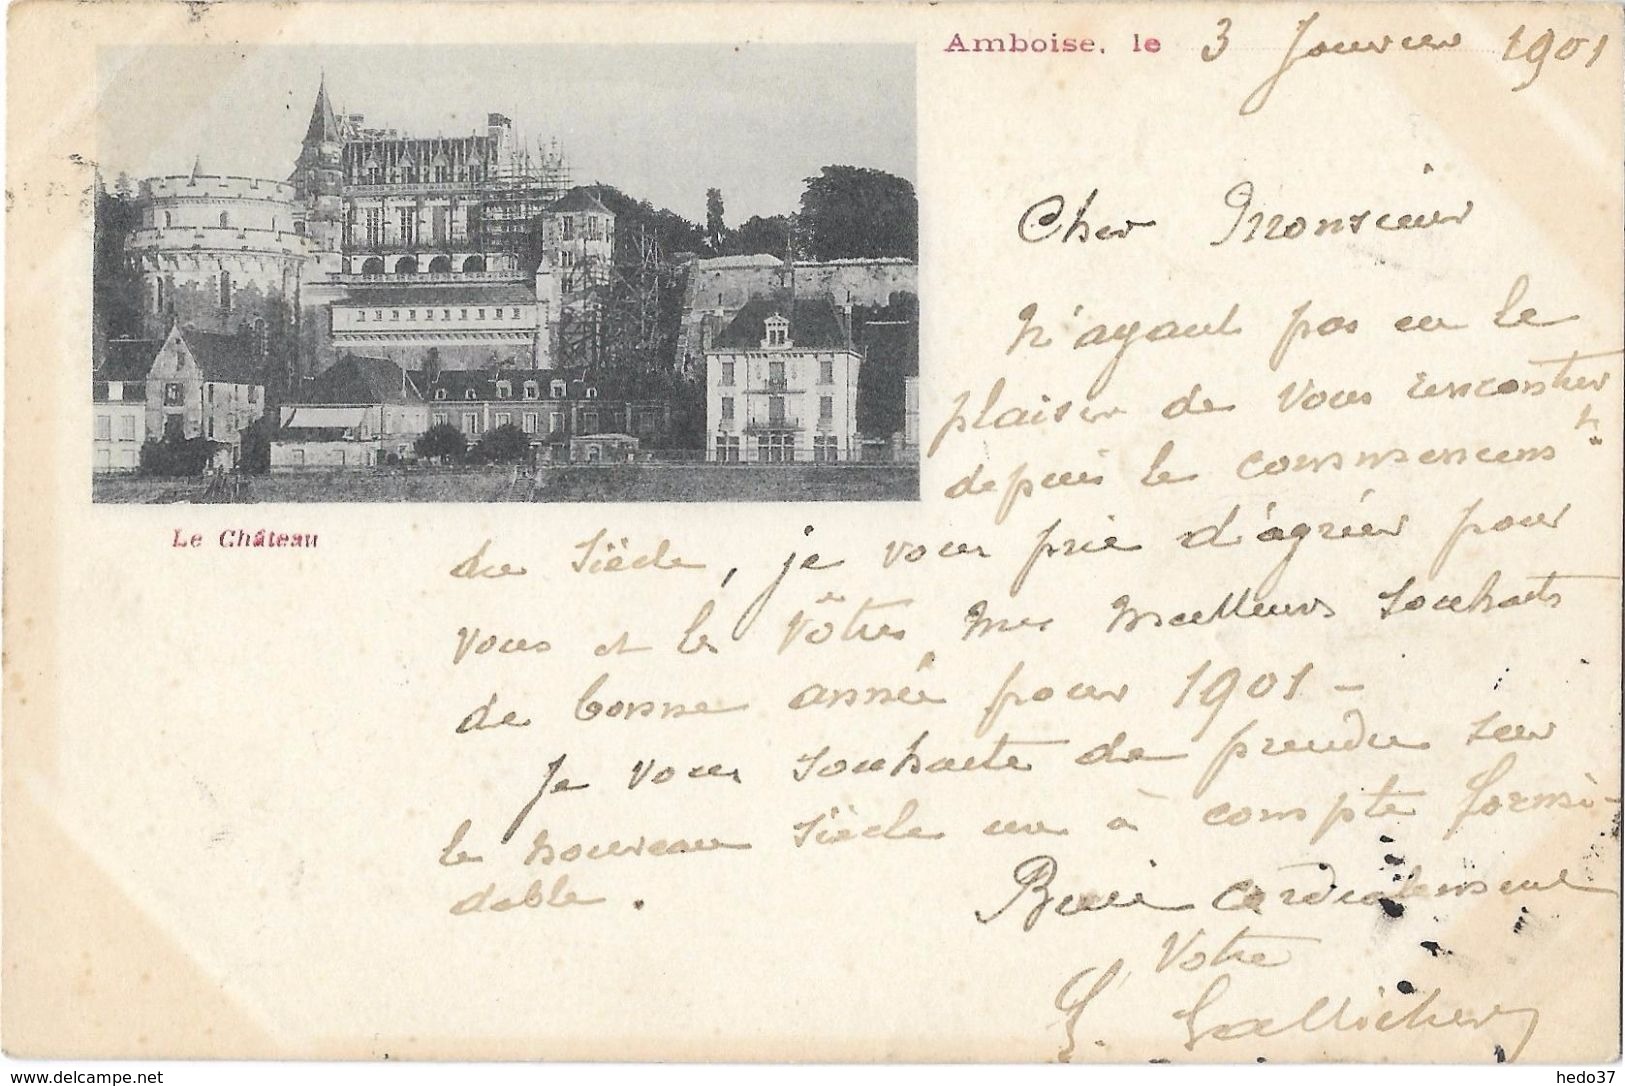 Amboise, le 3 Janvier 1901
Cher Monsieur
N'ayant pas eu le
plaisir de vous rencontrer
depuis le commencemt
Le Château
du siècle, je vous prie d'agréer pour
vous et les vôtres, mes meilleurs souhaits
de bonne année pour 1901 -
Je vous souhaite de prendre sur
le nouveau siècle un à compte formi-
dable.
Bien cordialement
Votre
www.delcampe.net
hedo37